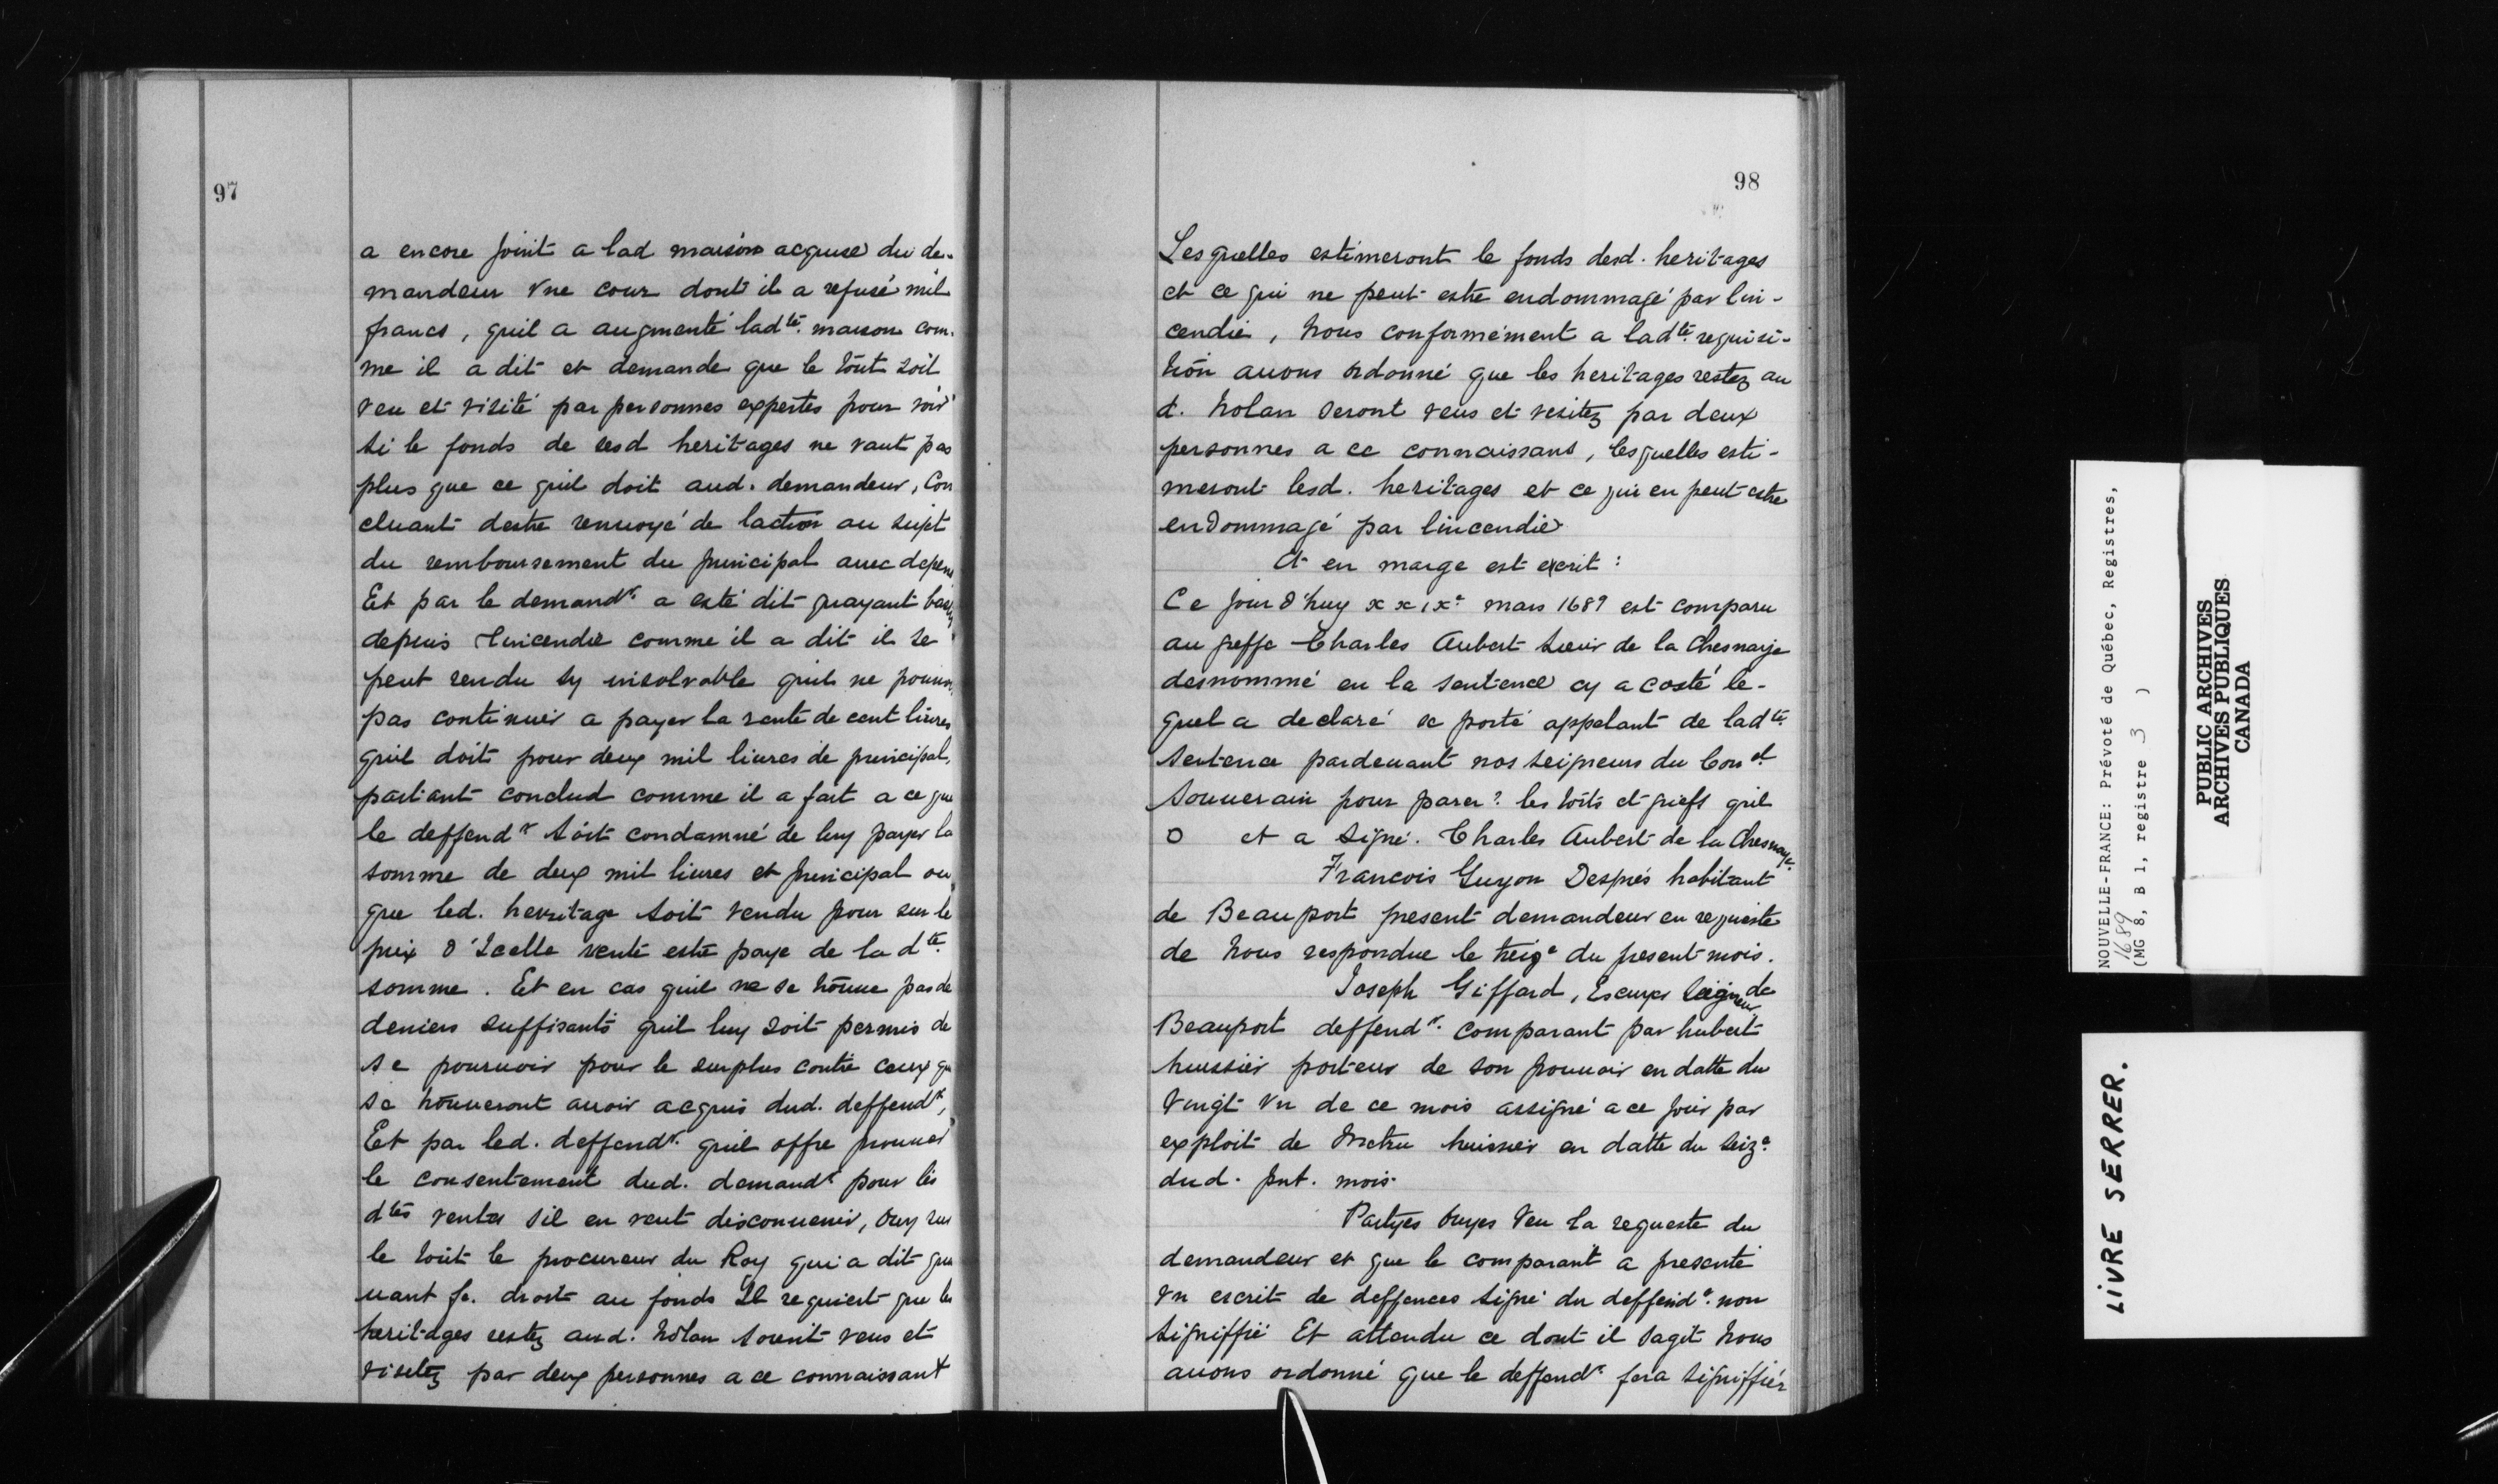 97
a encore joint a lad maison acquise du de-
mandeur vne cour dont il a refusé mil
francs, quil a augmenté ladte. maison com-
me il a dit et demande que le tout soit
veu et visité par personnes expertes pour voir
si le fonds de sesd heritages ne vaut pas
plus que ce quil doit aud. demandeur, Con
cluant destre renuoyé de laction au sujet
du remboursement du principal auec depens
Et par le demandr. a esté dit quayant
depuis lincendie comme il a dit il se
peut rendu sy insolvable quil ne
pas continuer a payer la rente de cent liures
quil doit pour deux mil liures de principal,
partant conclud comme il a fait a ce que
le deffendr soit condamné de luy payer la
somme de deux mil liures et principal ou
que led. herritage soit vendu pour sur le
prix d'Icelle vente estre paye de la dte.
somme. Et en cas quil ne se trouue pas de
deniers suffisants quil luy soit permis de
se pouruoir pour le surplus contre ceux qui
se trouueront auoir acquis dud. deffendr,
Et par led. deffendr. quil offre prouuer
le consentement dud. demandr. pour les
dtes ventes sil en veut disconuenir, Ouy sur
le tout le procureur du Roy qui a dit que
uant fe. droit au fonds Il requiert que les
heritages restez aud. Nolan soient veus et
visitez par deux personnes a ce connaissant
98
Lesquelles estimeront le fonds desd. heritages
et ce qui ne peut estre endommagé par lin-
cendie, Nous conformément a ladte. requisi-
tion auons ordonné que les heritages restez au
d. Nolan seront veus et visitez par deux
personnes a ce connaissans, lesquelles esti-
meront lesd. heritages et ce qui en peut estre
endommagé par lincendie
Et en marge est escrit:
Ce jour d'huy xxixe mars 1689 est comparu
au greffe Charles Aubert sieur de la Chesnaye
desnommé en la sentence cy a costé le-
quel a declaré se porté appelant de ladte.
sentence pardeuant nos seigneurs du Conel
souuerain pour parer? les torts et griefs quil
O et a signé. Charles Aubert de la Chesnaye.
Francois Guyon Després habitant
de Beauport present demandeur en requeste
de Nous respondue le treize du present mois.
Joseph Giffard, Escuyer Seigneur de
Beauport deffendr. comparant par hubert
huissier porteur de son pouuoir en datte du
vingt vn de ce mois assigné a ce jour par
exploit de Metru huissier en datte du seize
dud. pnt. mois.
Partyes Ouyes Veu la requeste du
demandeur et que le comparant a presenté
vn escrit de deffences signé du deffendr. non
signiffié Et attendu ce dont il sagit Nous
auons ordonné que le deffendr. fera signiffier
NOUVELLE-FRANCE: Prévoté de Québec, Registres,
1689
(MG 8, B 1, registre 3 )
PUBLIC ARCHIVES
ARCHIVES PUBLIQUES
CANADA
LIVRE SERRER.